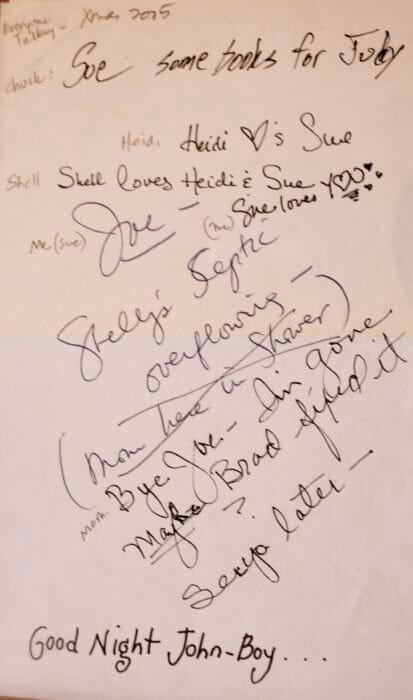 Everyone Talking - Xmas 2015
Chuck: Sue some books for Judy
Heidi Heidi ♡'s Sue
Shell Shell loves Heidi & Sue
(me) Sue loves YOU
Me (Sue) Joe -
Shelly's Septic
overflowing -
(Mom here in shower)
Mom. Bye Joe - I'm gone.
Maybe Brad fixed it
?
Seeya later -
Good Night John-Boy....